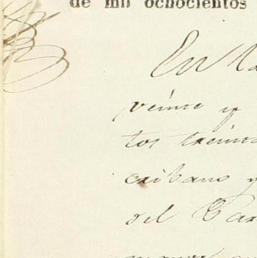 de mil ochocientos
En la
veinte y
tos treinta
cribano y
del